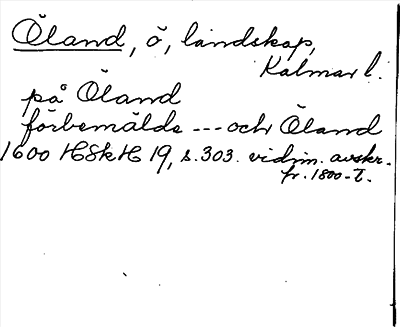 Öland, ö, landskap,
Kalmar l.
på Öland
förbemälde --- och Öland
1600 HSkH 19, s. 303. vidim. avskr.
fr. 1800-t.